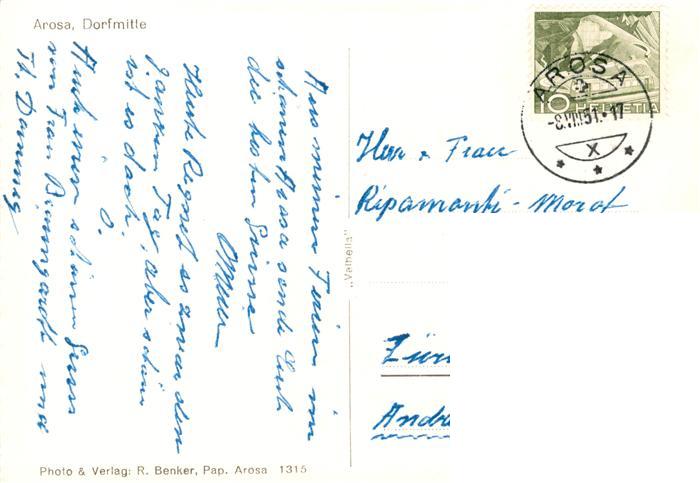 Arosa, Dorfmitte
Aus meinen Ferien im
schönen Arosa sende Euch
die besten Grüsse
Heute Regnet es zwar den
ganzen Tag, aber schön
ist es doch.
Auch einen schönen Gruss
von Frau und
Photo & Verlag: R. Benker, Pap. Arosa 1315
„Valhella"
AROSA
-8.VIII.51.-17
X
10 HELVETIA
Herr & Frau
Ripamonti - Morat
Zür
Andr